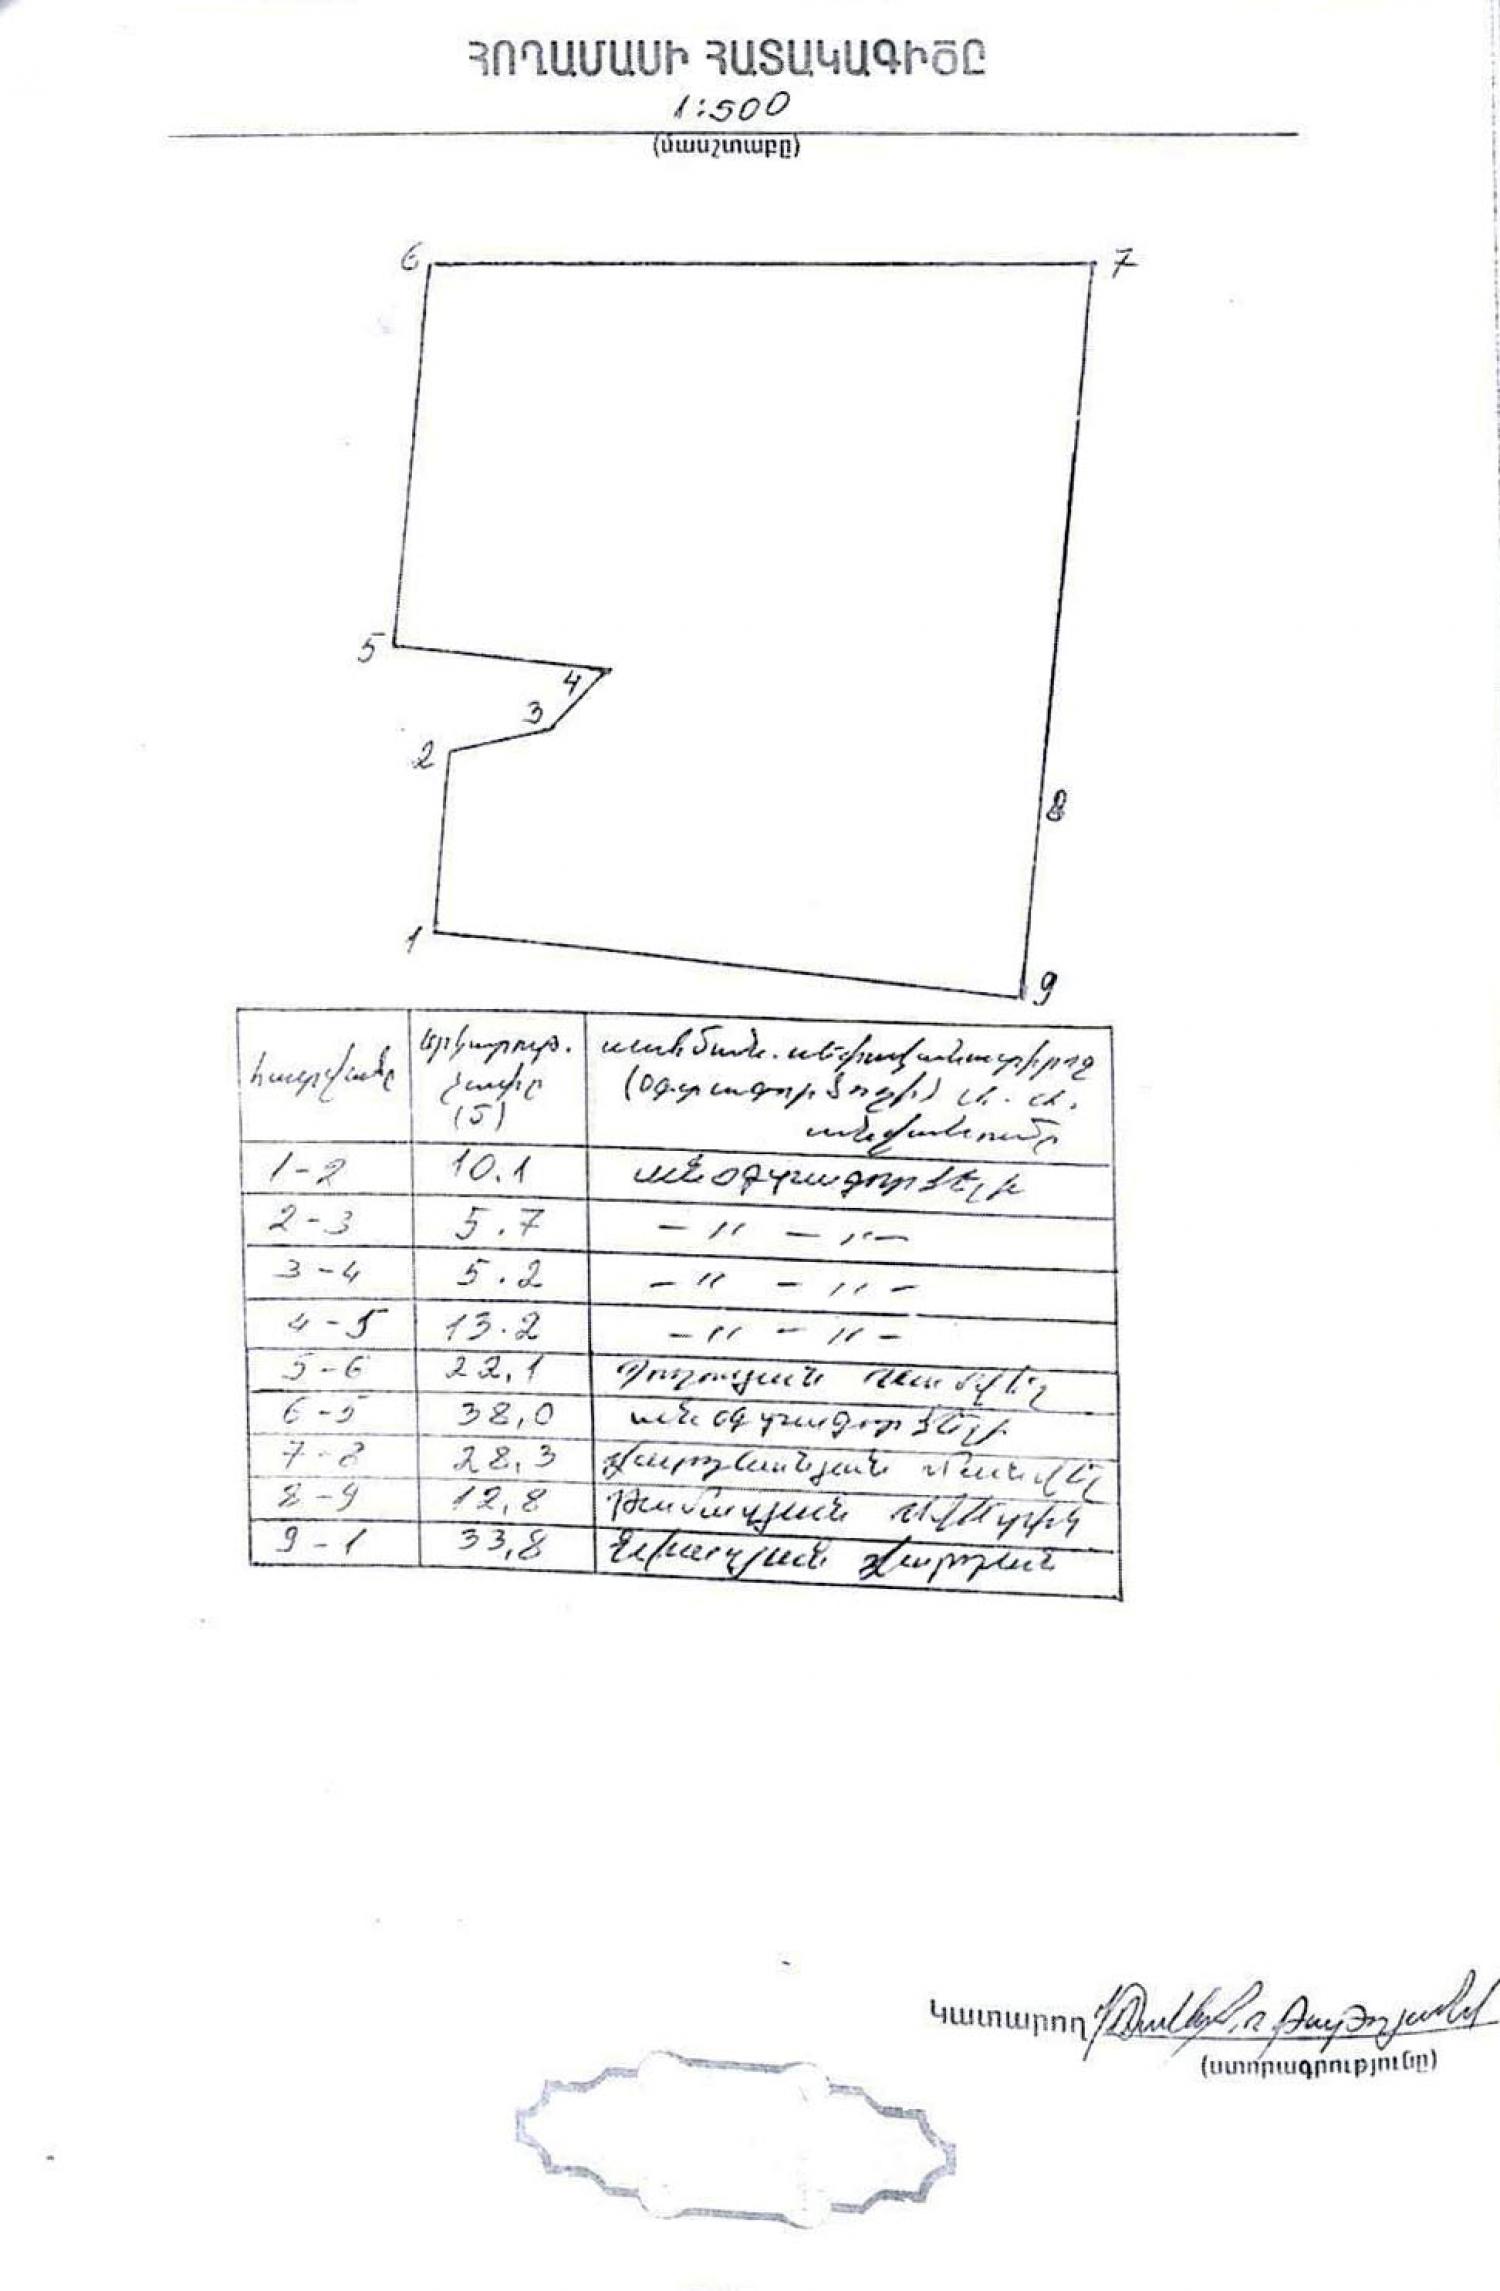 ՀՈՂԱՄԱՍԻ ՀԱՏԱԿԱԳԻԾԸ
1:500
(մասշտաբը)
6
7
5
4
3
2
8
1
9
հատվածը
երկարութ. չափը (մ)
սահման. սեփականատիրոջ (օգտագործողի) ա. ա. անվանումը
1-2 10.1 անօգտագործելի
2-3 5.7 - " - " -
3-4 5.2 - " - " -
4-5 13.2 - " - " -
5-6 22,1 Պողոսյան
6-5 38,0 անօգտագործելի
7-8 28,3
8-9 12,8
9-1 33,8
Կատարող
(ստորագրությունը)